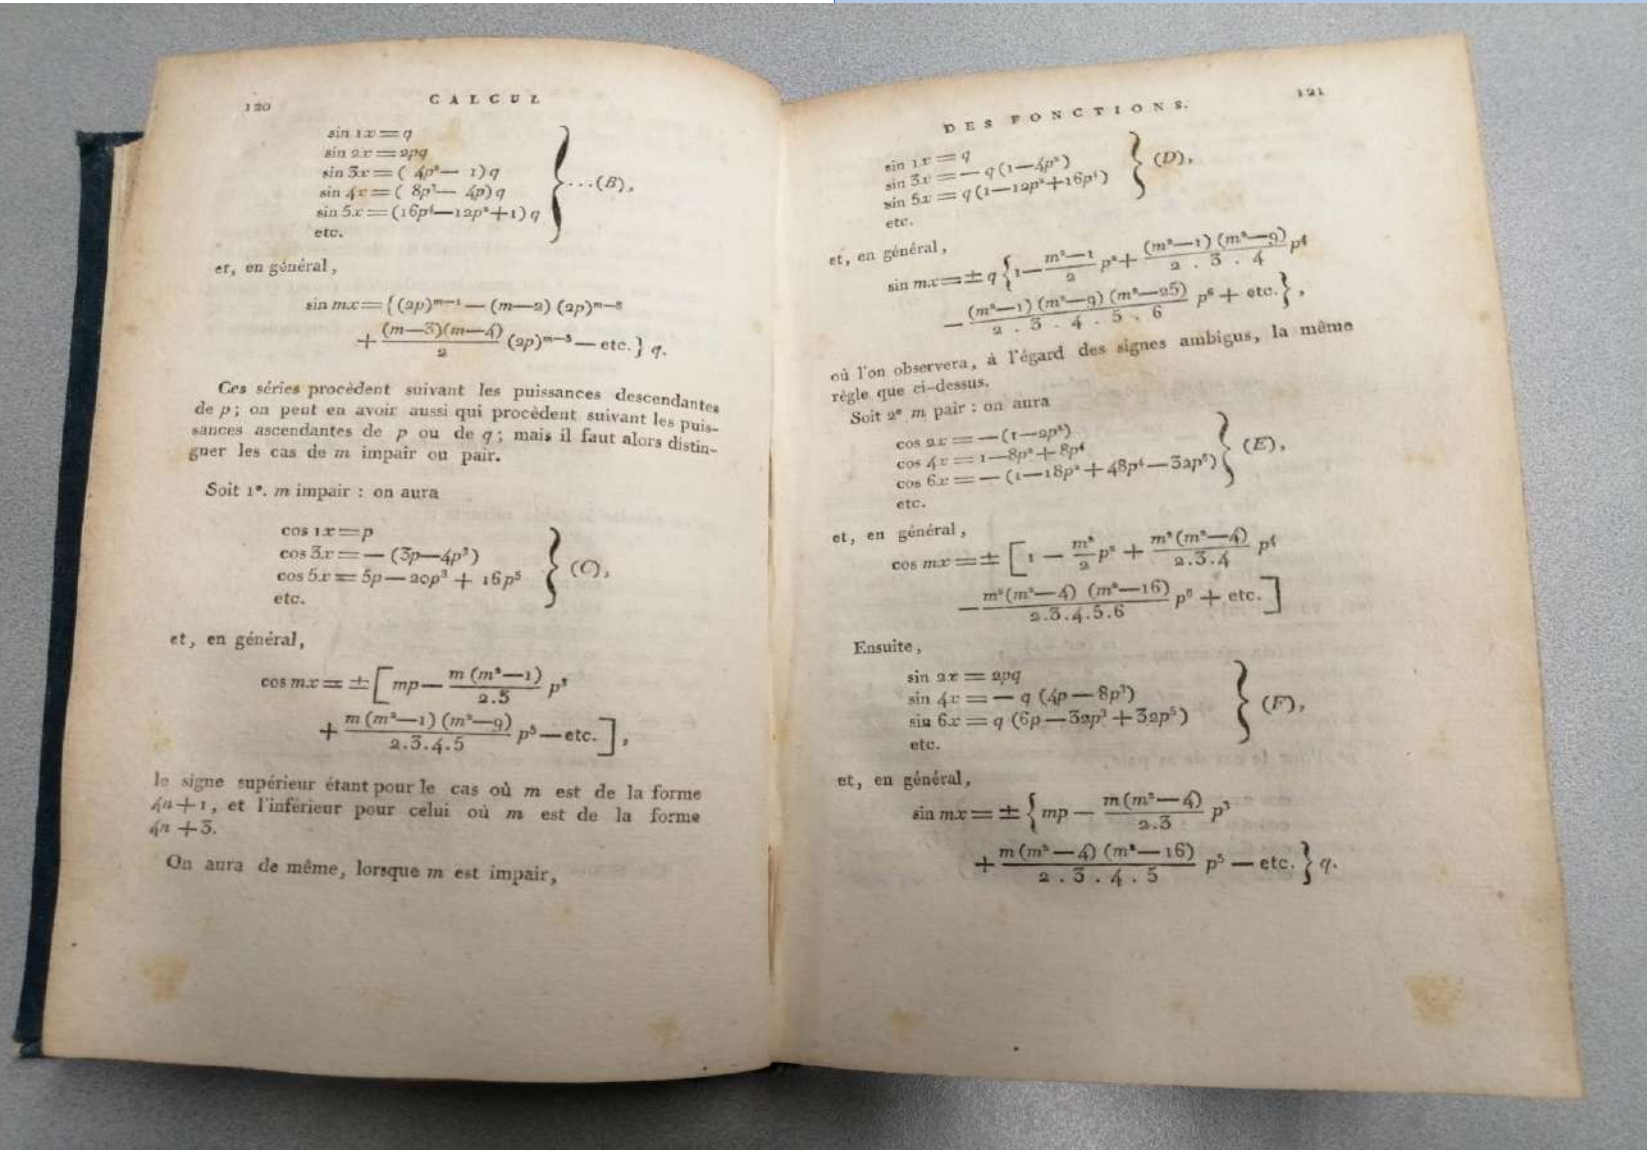 120
CALCUL
sin 1x = q
sin 2x = 2pq
sin 3x = ( 4p² — 1) q
sin 4x = ( 8p³ — 4p) q
sin 5x = (16p⁴—12p²+1) q
etc.
} ...(B),
et, en général,
sin mx = { (2p)ᵐ⁻¹ — (m—2) (2p)ᵐ⁻³
+ (m—3)(m—4)/2 (2p)ᵐ⁻⁵ — etc. } q.
Ces séries procèdent suivant les puissances descendantes
de p; on peut en avoir aussi qui procèdent suivant les puis-
sances ascendantes de p ou de q; mais il faut alors distin-
guer les cas de m impair ou pair.
Soit 1°. m impair : on aura
cos 1x = p
cos 3x = — (3p—4p³)
cos 5x = 5p — 20p³ + 16p⁵
etc.
} (C),
et, en général,
cos mx = ± [ mp — m (m²—1)/2.3 p³
+ m (m²—1) (m²—9)/2.3.4.5 p⁵ — etc. ],
le signe supérieur étant pour le cas où m est de la forme
4n+1, et l'inférieur pour celui où m est de la forme
4n+3.
On aura de même, lorsque m est impair,
DES FONCTIONS.
121
sin 1x = q
sin 3x = — q (1—4p²)
sin 5x = q (1—12p²+16p⁴)
etc.
} (D),
et, en général,
sin mx = ± q { 1 — m²—1/2 p² + (m²—1) (m²—9)/2 . 3 . 4 p⁴
— (m²—1) (m²—9) (m²—25)/2 . 3 . 4 . 5 . 6 p⁶ + etc. },
où l'on observera, à l'égard des signes ambigus, la même
règle que ci-dessus.
Soit 2° m pair : on aura
cos 2x = — (1—2p²)
cos 4x = 1—8p²+8p⁴
cos 6x = — (1—18p²+48p⁴—32p⁶)
etc.
} (E),
et, en général,
cos mx = ± [ 1 — m²/2 p² + m²(m²—4)/2.3.4 p⁴
— m²(m²—4) (m²—16)/2.3.4.5.6 p⁶ + etc. ]
Ensuite,
sin 2x = 2pq
sin 4x = — q (4p — 8p³)
sin 6x = q (6p — 32p³ + 32p⁵)
etc.
} (F),
et, en général,
sin mx = ± { mp — m(m²—4)/2.3 p³
+ m(m²—4) (m²—16)/2 . 3 . 4 . 5 p⁵ — etc. } q.